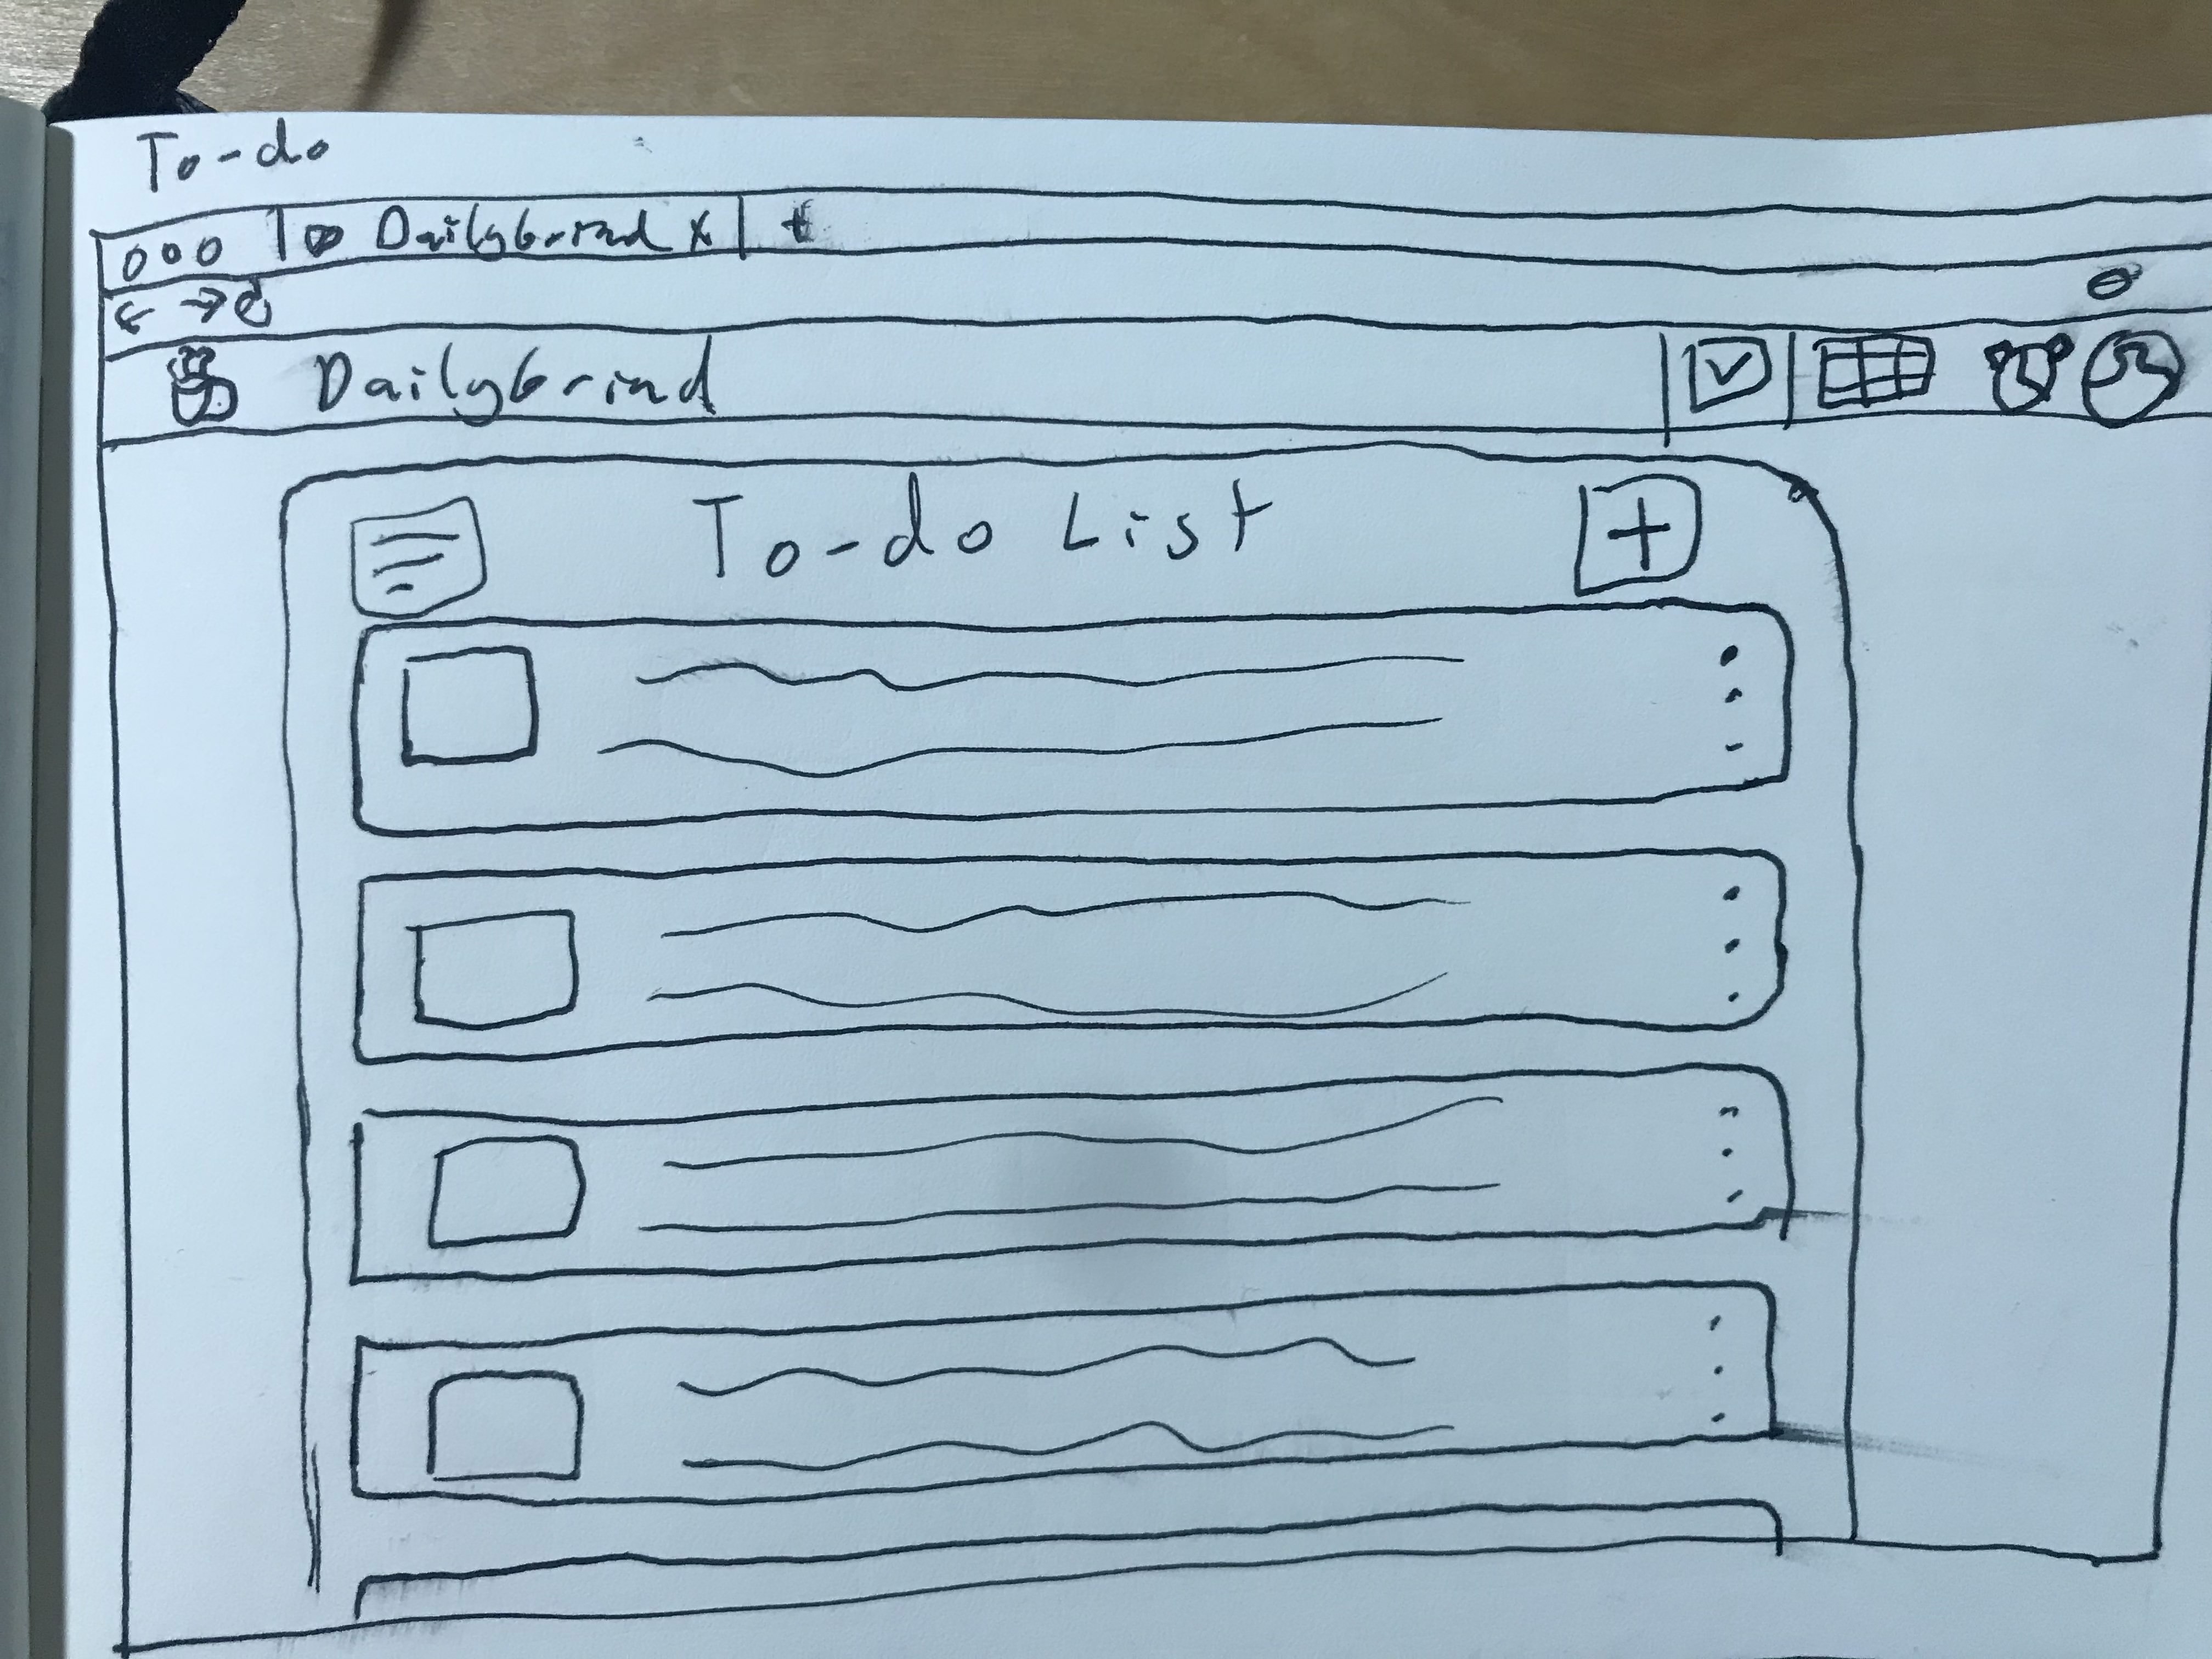 To-do
DailyGrind x +
DailyGrind
To-do List